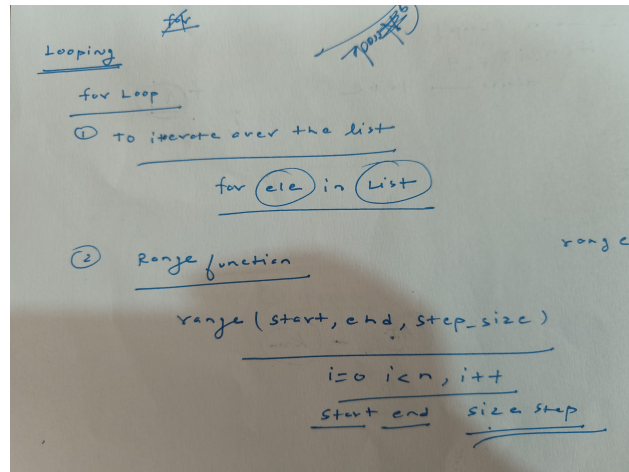 for
Looping
for Loop
① To iterate over the list
for ele in List
② Range function
range
range (start, end, step_size)
i=0 i<n, i++
start end size step